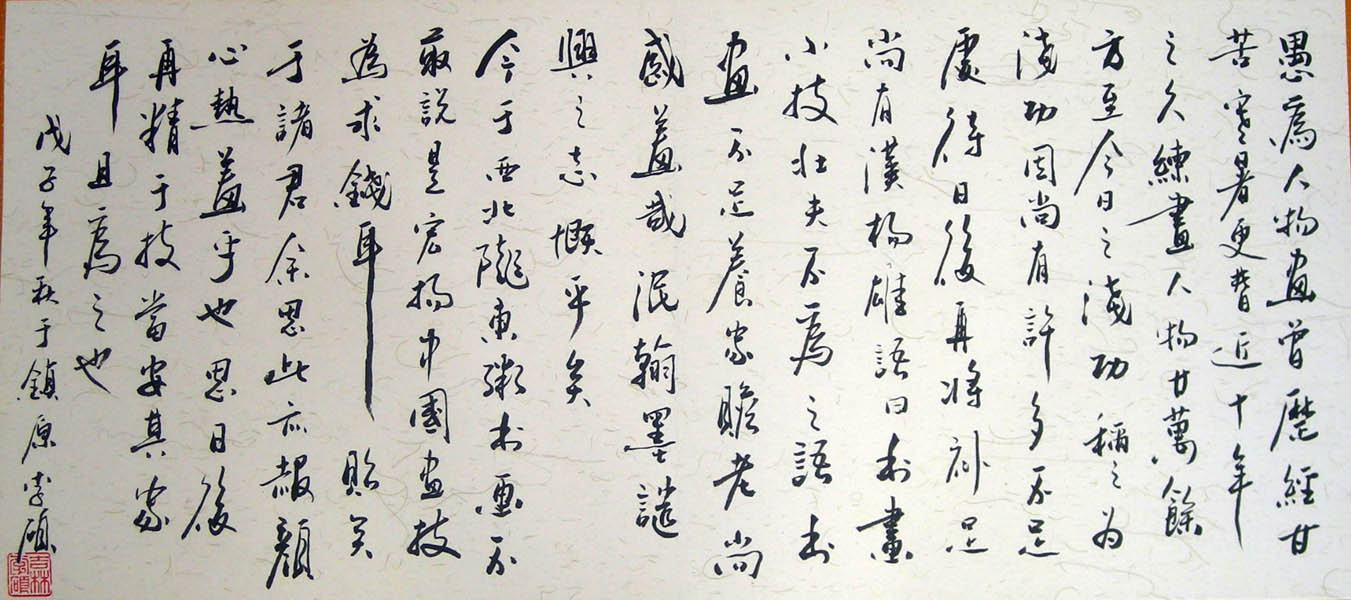 愚為人物畫曾歷經甘
苦寒暑更替近十年
之久練畫人物廿萬餘
方至今日之淺功稱之为
淺功因尚有許多不足
處待日後再將補足
尚有漢楊雄語曰書畫
小技壯夫不為之語書
畫不足養家贍老尚
感羞哉泯翰墨
興之志慨乎矣
今于西北隴東鬻書畫不
敢説是宏揚中國畫技
為求錢耳貽笑
于諸君余思此亦赧顏
心熱羞乎也思日後
再精于技當安其家
耳且為之也
戊子年秋于鎮原李碩